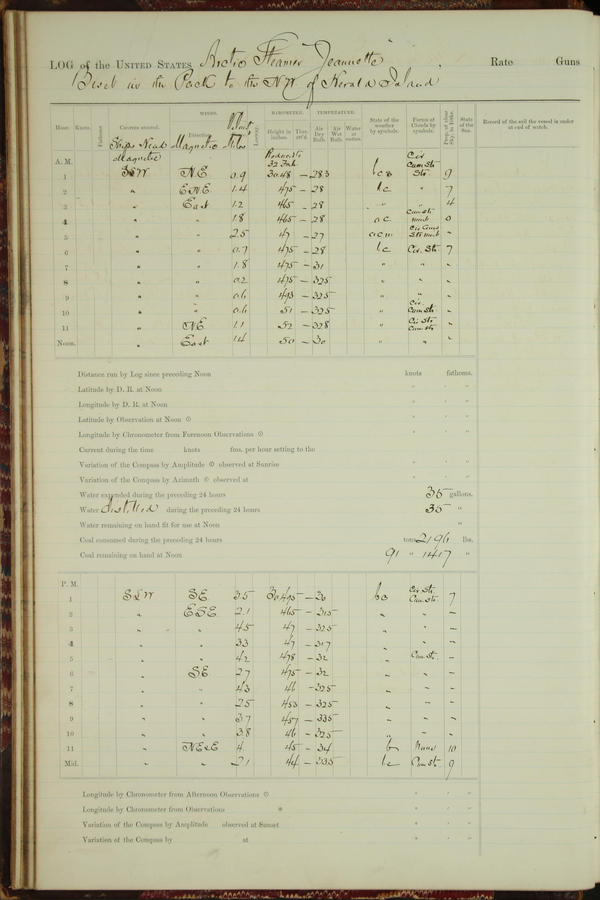 LOG of the UNITED STATES Arctic Steamer Jeannette Rate Guns
Beset in the Pack to the NW of Herald Island
WINDS. BAROMETER. TEMPERATURE.
Hour. Knots. Fathoms. Courses steered. Direction. Leeway. Height in inches. Ther. att'd. Air Dry Bulb. Air Wet Bulb. Water at surface. State of the weather by symbols. Forms of Clouds by symbols. Prop. of clear Sky, in 10ths. State of the Sea. Record of the sail the vessel is under at end of watch.
Ships Head Magnetic Miles
Magnetic
A. M.
1 NE 0.9 30.48 -28.3 bcs 9
2 " ENE 1.4 475 -28 bc " 7
3 " East 1.2 465 -28 " " 4
4 " " 1.8 465 -28 oc 0
5 " " 2.5 47 -27 ocm "
6 " " 0.7 475 -28 bc Cir. Str. 7
7 " " 1.8 475 -31 " " "
8 " " 0.2 475 -32.5 " " "
9 " " 0.6 493 -32.5 " " "
10 " " 0.6 51 -32.5 " "
11 " NE 1.1 52 -32.8 " "
Noon. " East 1.4 50 -30 " "
Distance run by Log since preceding Noon knots fathoms.
Latitude by D. R. at Noon " " "
Longitude by D. R. at Noon " " "
Latitude by Observation at Noon ☉ " " "
Longitude by Chronometer from Forenoon Observations ☉ " " "
Current during the time knots fms. per hour setting to the
Variation of the Compass by Amplitude ☉ observed at Sunrise " " "
Variation of the Compass by Azimuth ☉ observed at " " "
Water expended during the preceding 24 hours 35 gallons.
Water distilled during the preceding 24 hours 35 "
Water remaining on hand fit for use at Noon "
Coal consumed during the preceding 24 hours tons 2196 lbs.
Coal remaining on hand at Noon 91 " 1417 "
P. M.
1 SE 3.5 30.495 -30 7
2 " ESE 2.1 465 -31.5 " " "
3 " " 4.5 47 -32.5 " " "
4 " " 3.3 47 -31.7 " " "
5 " " 4.2 478 -32 " Cum. Str. "
6 " SE 2.7 475 -32 " " "
7 " " 4.3 46 -32.5 " " "
8 " " 2.5 453 -32.5 " " "
9 " " 3.7 457 -33.5 " " "
10 " " 3.8 46 -32.5 " " "
11 " 4. 45 -34 b None 10
Mid. " " 2.1 44 -33.5 bc Cum Str 9
Longitude by Chronometer from Afternoon Observations ☉ " " "
Longitude by Chronometer from Observations * " " "
Variation of the Compass by Amplitude observed at Sunset " " "
Variation of the Compass by at " " "